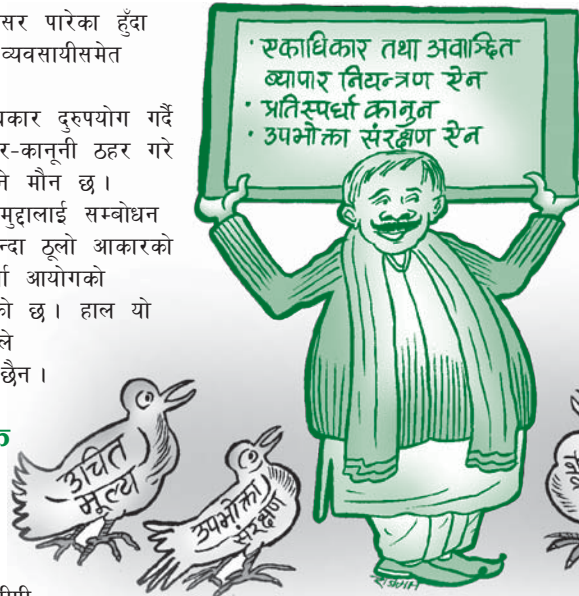 सर पारेका हुँदा
व्यवसायीसमेत
दुरुपयोग गर्दै
र-कानूनी ठहर गरे
मौन छ ।
मुद्दालाई सम्बोधन
न्दा ठूलो आकारको
आयोगको
छ । हाल यो
ले
छैन ।
क
· एकाधिकार तथा अवाञ्छित
व्यापार नियन्त्रण ऐन
· प्रतिस्पर्धा कानुन
· उपभोक्ता संरक्षण ऐन
उचित
मूल्य
उपभोक्ता
संरक्षण